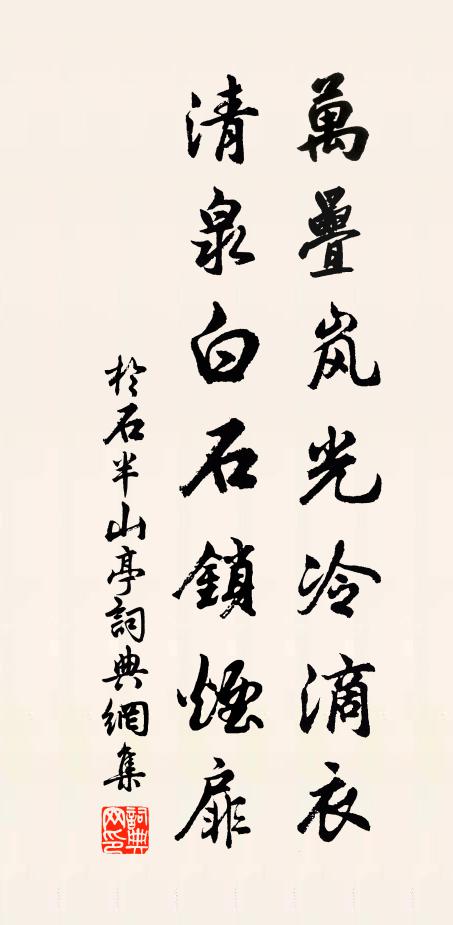 萬疊岚光冷滴衣
清泉白石鎖煙扉
於石半山亭詞典網集
詞典网印